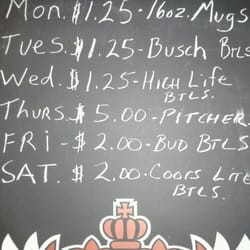 Mon. $1.25-16oz. Mugs
Tues. $1.25-Busch Btls
Wed. $1.25-High Life
Btls.
Thurs. $5.00-Pitcher
Fri-$2.00-Bud Btls
Sat. $2.00-Coors Lite
Btls.